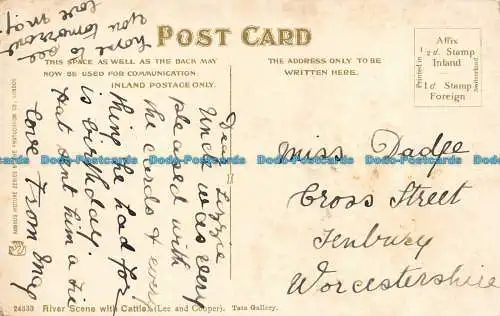 POST CARD
THIS SPACE AS WELL AS THE BACK MAY
NOW BE USED FOR COMMUNICATION:
INLAND POSTAGE ONLY.
THE ADDRESS ONLY TO BE
WRITTEN HERE.
Affix
½d. Stamp
Inland
or
1d. Stamp
Foreign
Printed in
Dear Lizzie
Uncle was very
pleased with
the cards & every
thing he had for
is birthday.
Hat sent him a tie
Love From May
hope to see
you tomorrow
love May
Miss Dadge
Cross Street
Tenbury
Worcestershire
24333 River Scene with Cattle. (Lee and Cooper). Tate Gallery.